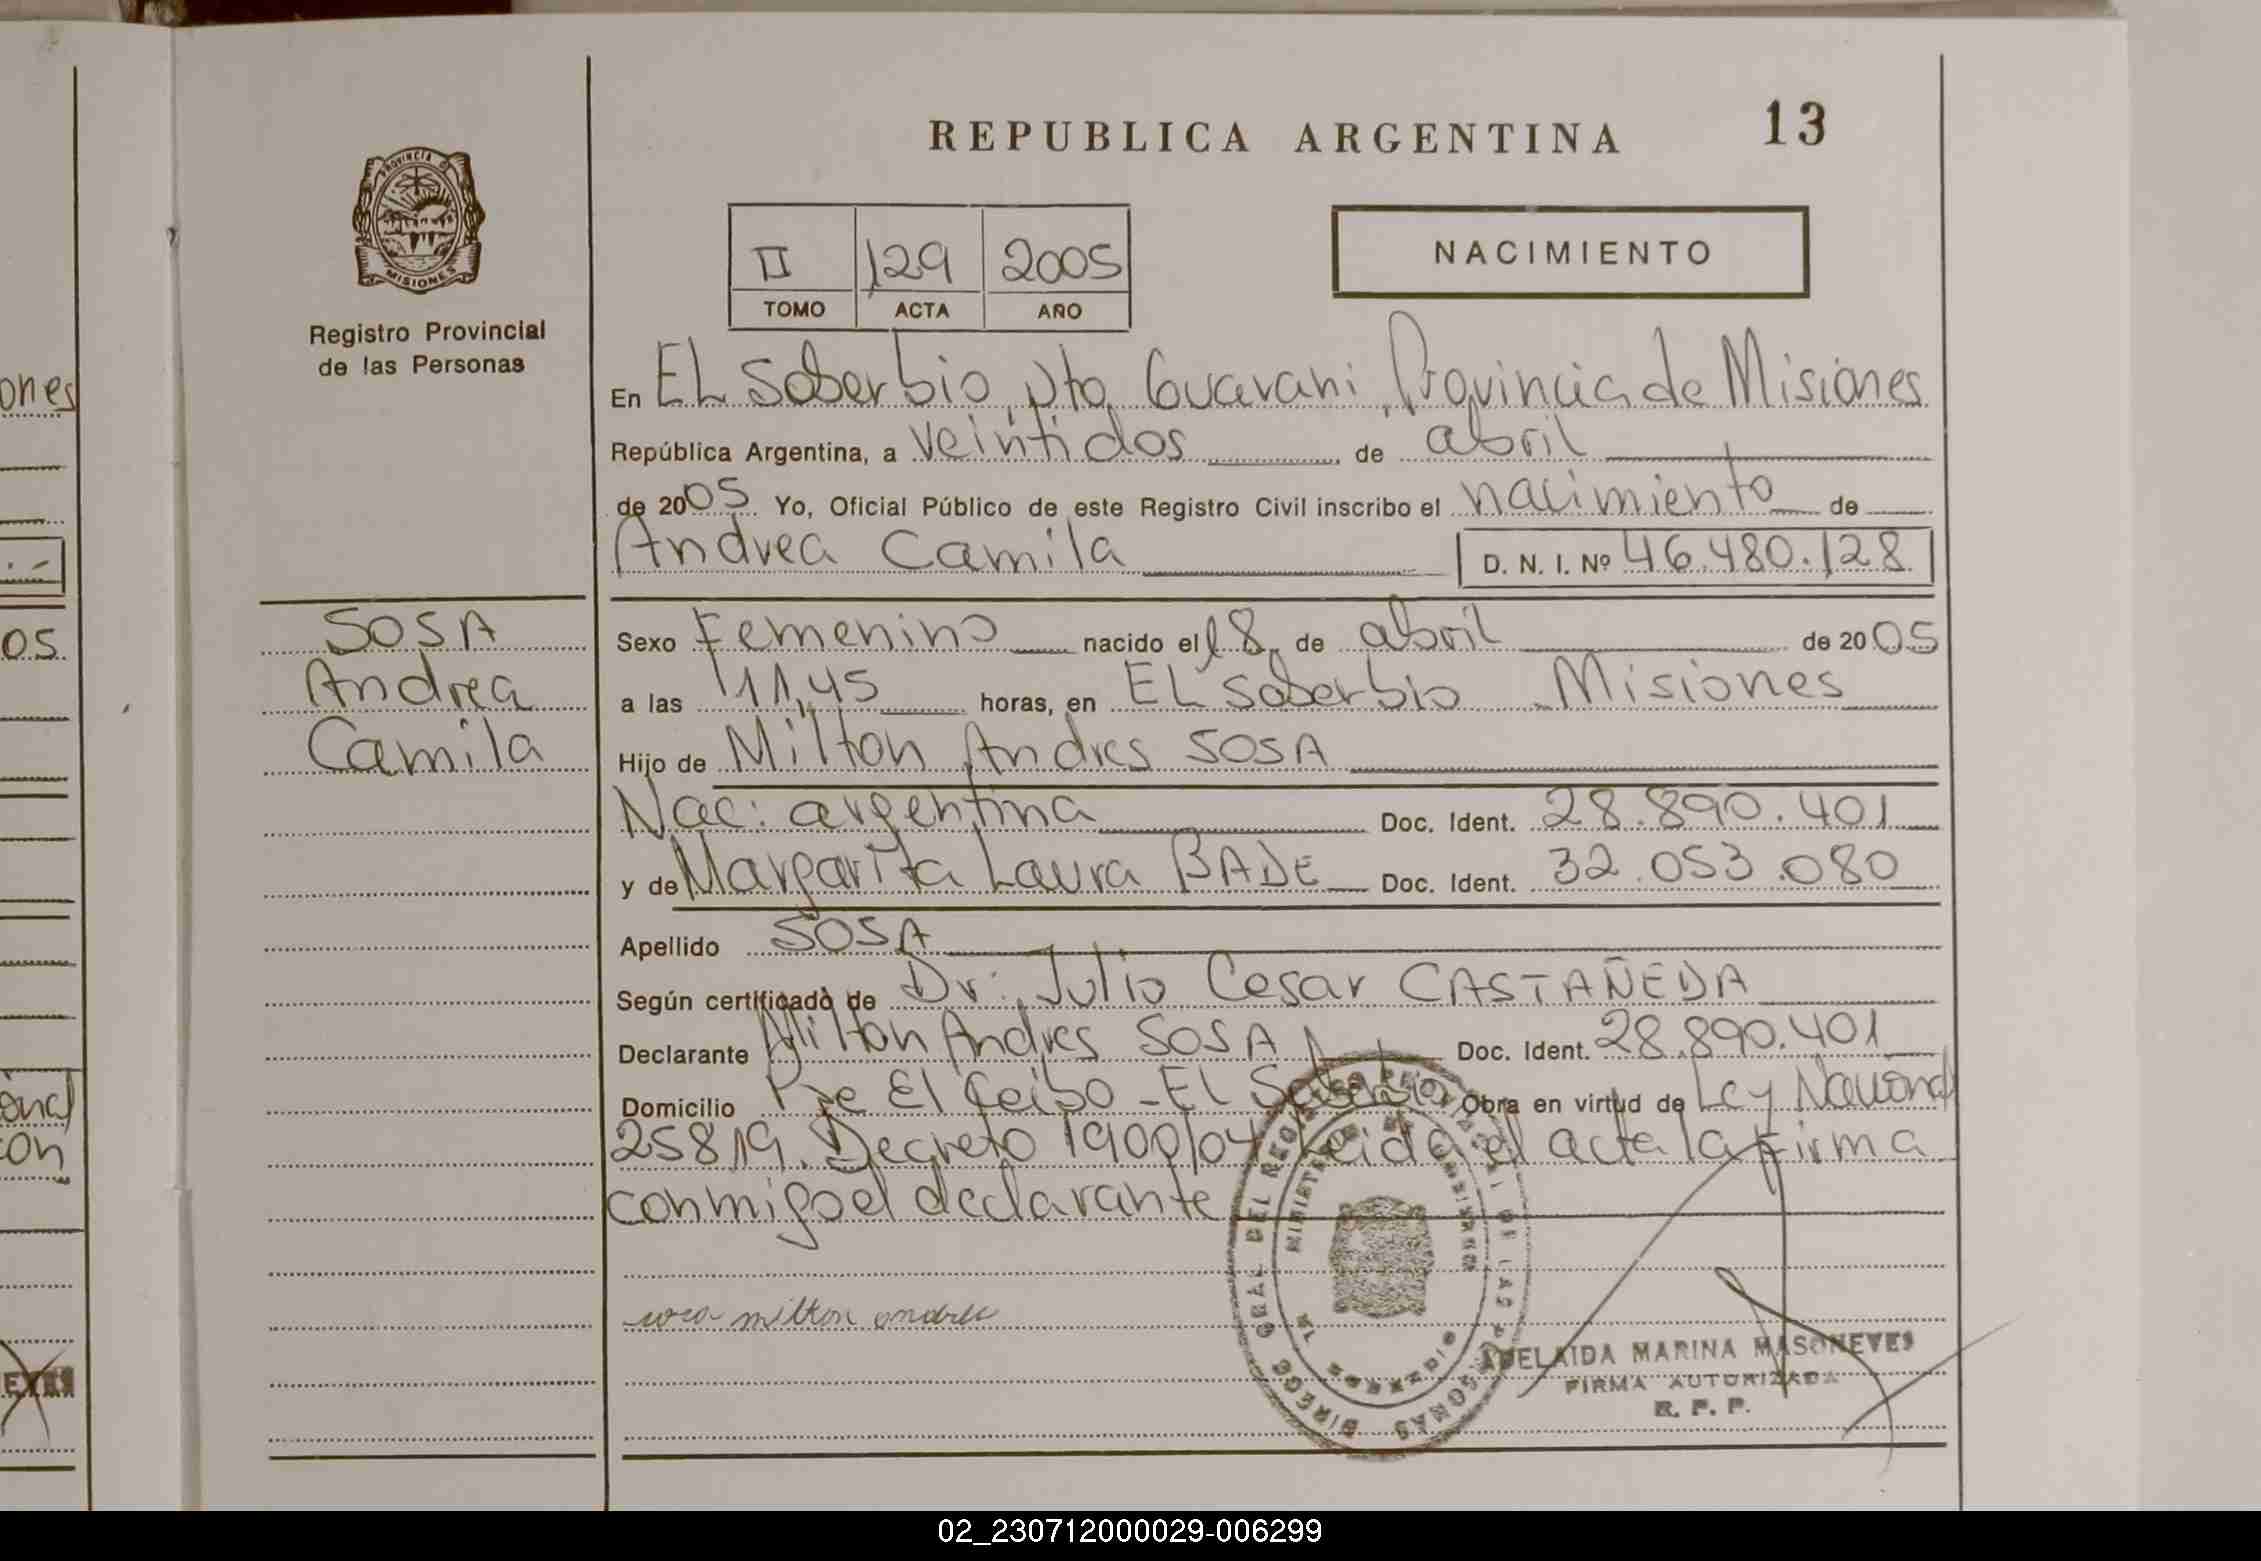 REPUBLICA ARGENTINA 13
PROVINCIA DE
MISIONES
Registro Provincial
de las Personas
II 129 2005
TOMO ACTA AÑO
NACIMIENTO
En EL Soberbio, Dto. Guarani, Provincia de Misiones
República Argentina, a veintidos, de abril
de 2005 Yo, Oficial Público de este Registro Civil inscribo el nacimiento de
Andrea Camila D. N. I. Nº 46.480.128
SOSA
Andrea
Camila
Sexo Femenino nacido el 18 de abril de 2005
a las 11,45 horas, en EL Soberbio Misiones
Hijo de Milton Andres SOSA
Nac: argentina Doc. Ident. 28.890.401
y de Margarita Laura BADE Doc. Ident. 32.053.080
Apellido SOSA
Según certificado de Dr: Julio Cesar CASTAÑEDA
Declarante Milton Andres SOSA Doc. Ident. 28.890.401
Domicilio Pje El Ceibo - EL Soberbio Obra en virtud de Ley Nacional
25819. Decreto 1900/04 Leida el acta la firma
conmigo el declarante
sosa milton andres
ADELAIDA MARINA MASONEVES
FIRMA AUTORIZADA
R. P. P.
ones
05
onal
on
02_230712000029-006299